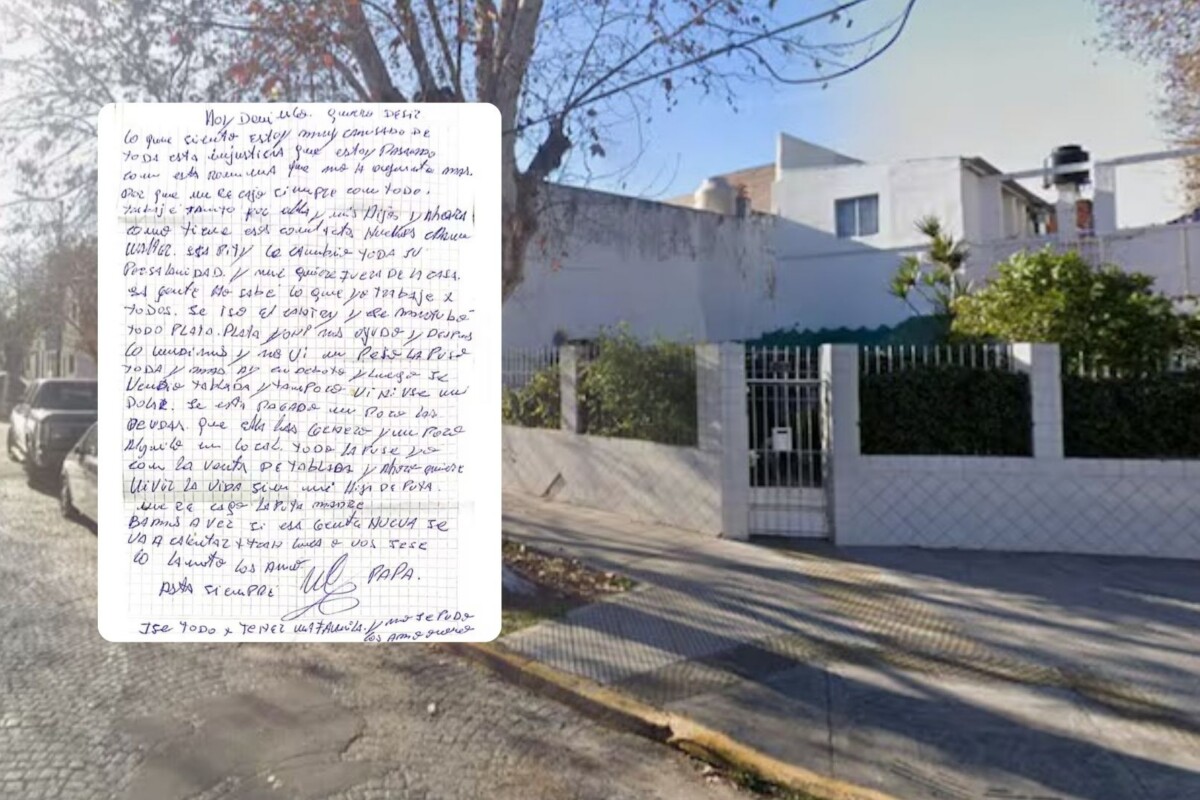 Hoy Domingo. quiero desir
lo que siento estoy muy cansado de
toda esta injusticia que estoy pasando
con esta que no la aguanto mas.
por que me re cago siempre con todo.
trabaje tanto por ella y mis hijos y ahora
como tiene esos contactos nuevos
Walter. esa le cambio toda su
y me quiere fuera de la casa.
esa gente no sabe lo que yo trabaje x
todos. se iso el y
todo plata. plata y despues
lo bendimos y no vi un peso la puse
toda y mas ay y luego se
Vendio tablada y tampoco vi niuse un
Dolar. se esta pagado un poco las
deudas que ella ha y un poco
Alquilo un local. toda la puse yo
con la venta de tablada y ahora quiere
vivir la vida sin mi Hija de puta.
me re cago la puta madre
Bamos a ver si esa gente nueva se
va a calentar x traer a vos
lo los Amo
Asta siempre PAPA.
Ise todo x tener una familia. y no se pudo
los Amo